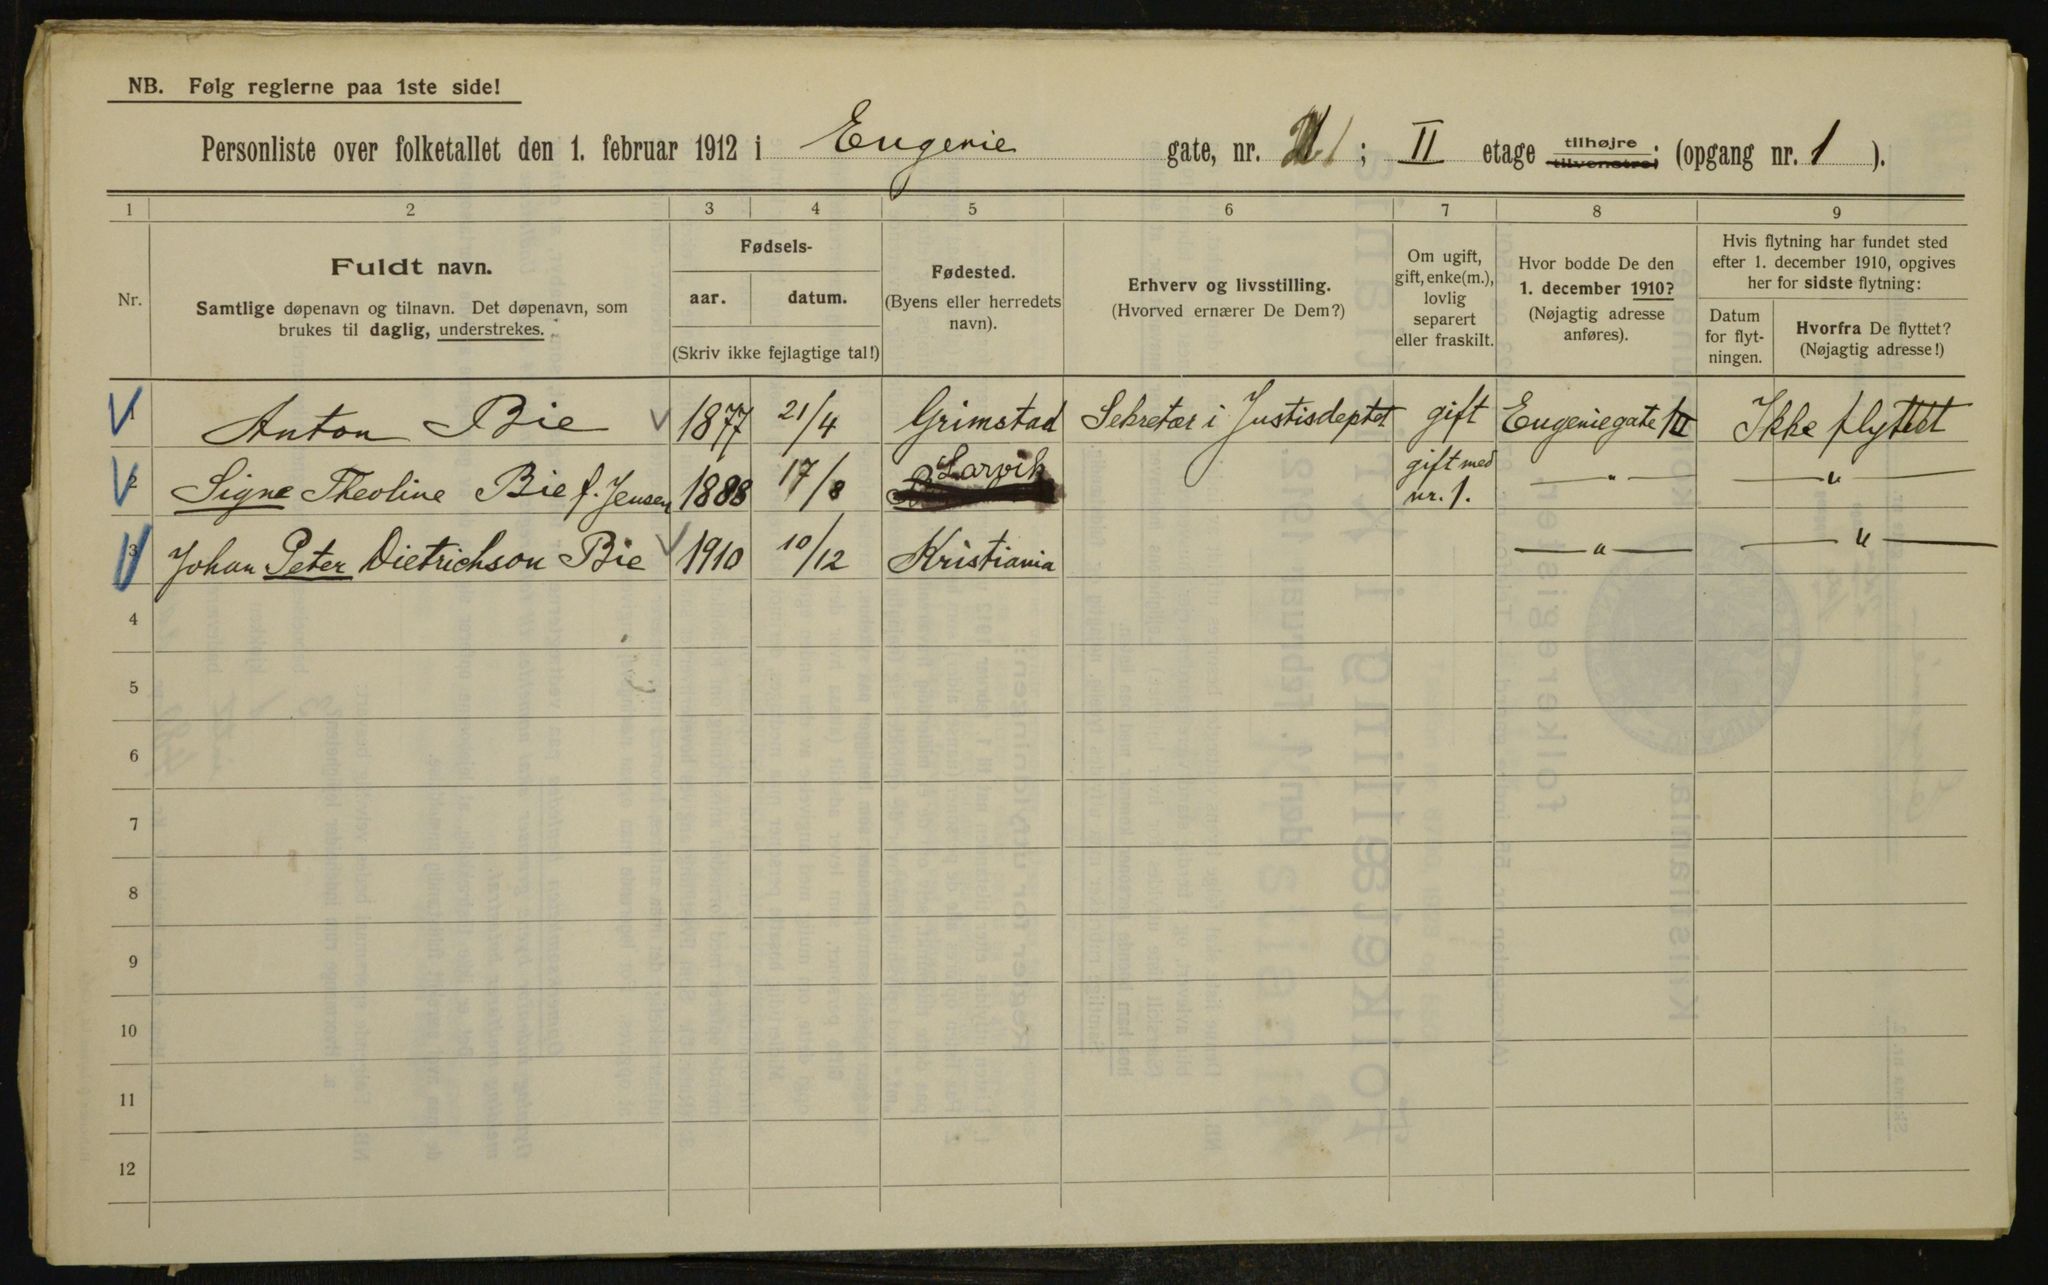 NB. Følg reglerne paa 1ste side!
Personliste over folketallet den 1. februar 1912 i Eugenie gate, nr. 1; II etage tilhøjre tilvenstre; (opgang nr. 1).
1 2 3 4 5 6 7 8 9
Nr.
Fuldt navn.
Samtlige døpenavn og tilnavn. Det døpenavn, som
brukes til daglig, understrekes.
Fødsels-
aar. datum.
(Skriv ikke fejlagtige tal!)
Fødested.
(Byens eller herredets
navn).
Erhverv og livsstilling.
(Hvorved ernærer De Dem?)
Om ugift,
gift, enke(m.),
lovlig
separert
eller fraskilt.
Hvor bodde De den
1. december 1910?
(Nøjagtig adresse
anføres).
Hvis flytning har fundet sted
efter 1. december 1910, opgives
her for sidste flytning:
Datum
for flyt-
ningen.
Hvorfra De flyttet?
(Nøjagtig adresse!)
1 Anton Bie 1877 21/4 Grimstad Sekretær i Justisdeptet gift Eugeniegate 1/II Ikke flyttet
2 Signe Theoline Bie f. Jensen 1888 17/8 Larvik gift med nr. 1. — " — — " —
3 Johan Peter Dietrichson Bie 1910 10/12 Kristiania — " — — " —
4
5
6
7
8
9
10
11
12